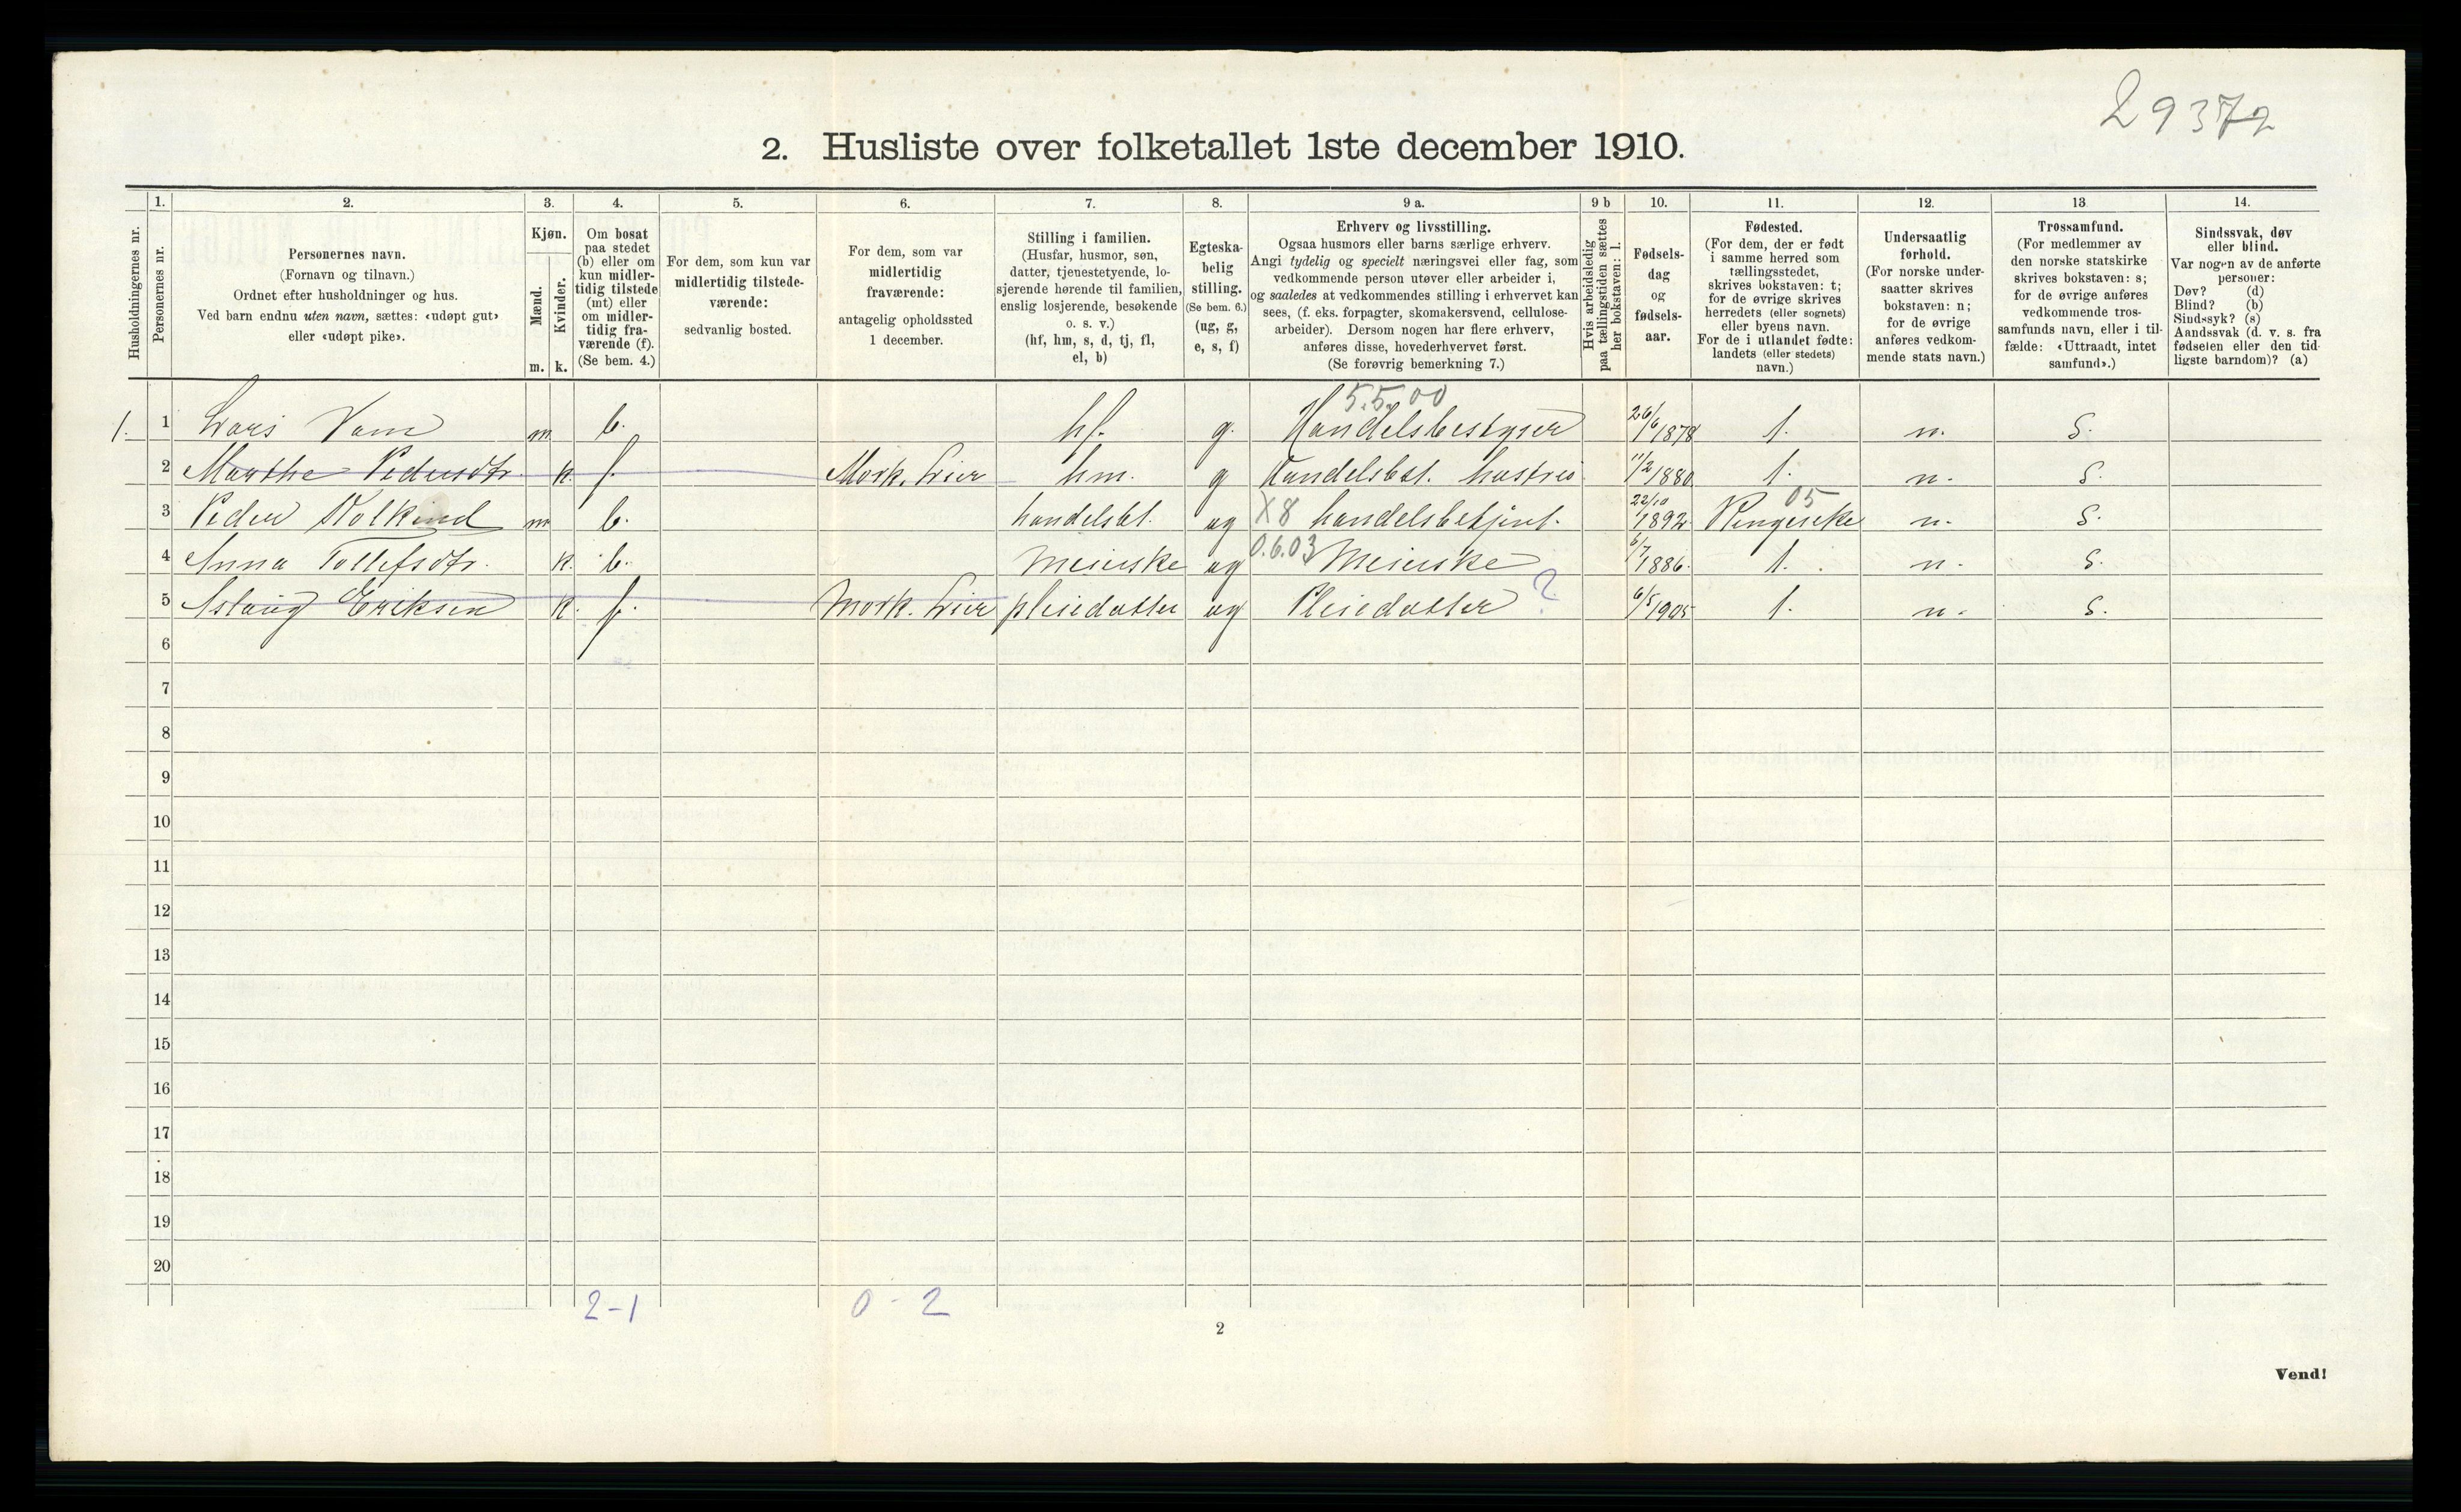 29372
2. Husliste over folketallet 1ste december 1910.
Husholdningernes nr.
1. Personernes nr.
2. Personernes navn.
(Fornavn og tilnavn.)
Ordnet efter husholdninger og hus.
Ved barn endnu uten navn, sættes: «udøpt gut»
eller «udøpt pike».
3. Kjøn.
Mænd. m.
Kvinder. k.
4. Om bosat
paa stedet
(b) eller om
kun midler-
tidig tilstede
(mt) eller
om midler-
tidig fra-
værende (f).
(Se bem. 4.)
5. For dem, som kun var
midlertidig tilstede-
værende:
sedvanlig bosted.
6. For dem, som var
midlertidig
fraværende:
antagelig opholdssted
1 december.
7. Stilling i familien.
(Husfar, husmor, søn,
datter, tjenestetyende, lo-
sjerende hørende til familien,
enslig losjerende, besøkende
o. s. v.)
(hf, hm, s, d, tj, fl,
el, b)
8. Egteska-
belig
stilling.
(Se bem. 6.)
(ug, g,
e, s, f)
9 a. Erhverv og livsstilling.
Ogsaa husmors eller barns særlige erhverv.
Angi tydelig og specielt næringsvei eller fag, som
vedkommende person utøver eller arbeider i,
og saaledes at vedkommendes stilling i erhvervet kan
sees, (f. eks. forpagter, skomakersvend, cellulose-
arbeider). Dersom nogen har flere erhverv,
anføres disse, hovederhvervet først.
(Se forøvrig bemerkning 7.)
9 b Hvis arbeidsledig
paa tællingstiden sættes
her bokstaven: l.
10. Fødsels-
dag
og
fødsels-
aar.
11. Fødested.
(For dem, der er født
i samme herred som
tællingsstedet,
skrives bokstaven: t;
for de øvrige skrives
herredets (eller sognets)
eller byens navn.
For de i utlandet fødte:
landets (eller stedets)
navn.)
12. Undersaatlig
forhold.
(For norske under-
saatter skrives
bokstaven: n;
for de øvrige
anføres vedkom-
mende stats navn.)
13 Trossamfund.
(For medlemmer av
den norske statskirke
skrives bokstaven: s;
for de øvrige anføres
vedkommende tros-
samfunds navn, eller i til-
fælde: «Uttraadt, intet
samfund».)
14. Sindssvak, døv
eller blind.
Var nogen av de anførte
personer:
Døv? (d)
Blind? (b)
Sindssyk? (s)
Aandssvak (d. v. s. fra
fødselen eller den tid-
ligste barndom)? (a)
5.5.00
1. 1 Lars Vam m b. hf. g. Handelsbestyrer 26/6 1878 t. n. S.
2 Marthe Pedersdtr. k. f. Mork. Lier hm. g Handelsbst. hustru 11/2 1880 t. n. S.
05
3 Peder m b. handelsbt. ug X8 handelsbetjent. 22/10 1892 Ringerike n. S.
4 Anna Tollefsdtr. k. b. Meierske ug 0.6.03 Meierske 6/7 1886. t. n. S.
5 Aslaug Eriksen k. f. Mork. Lier pleiedatter ug Pleiedatter ? 6/5 1905 t. n. S.
6
7
8
9
10
11
12
13
14
15
16
17
18
19
20
2-1 0-2
2
Vend!